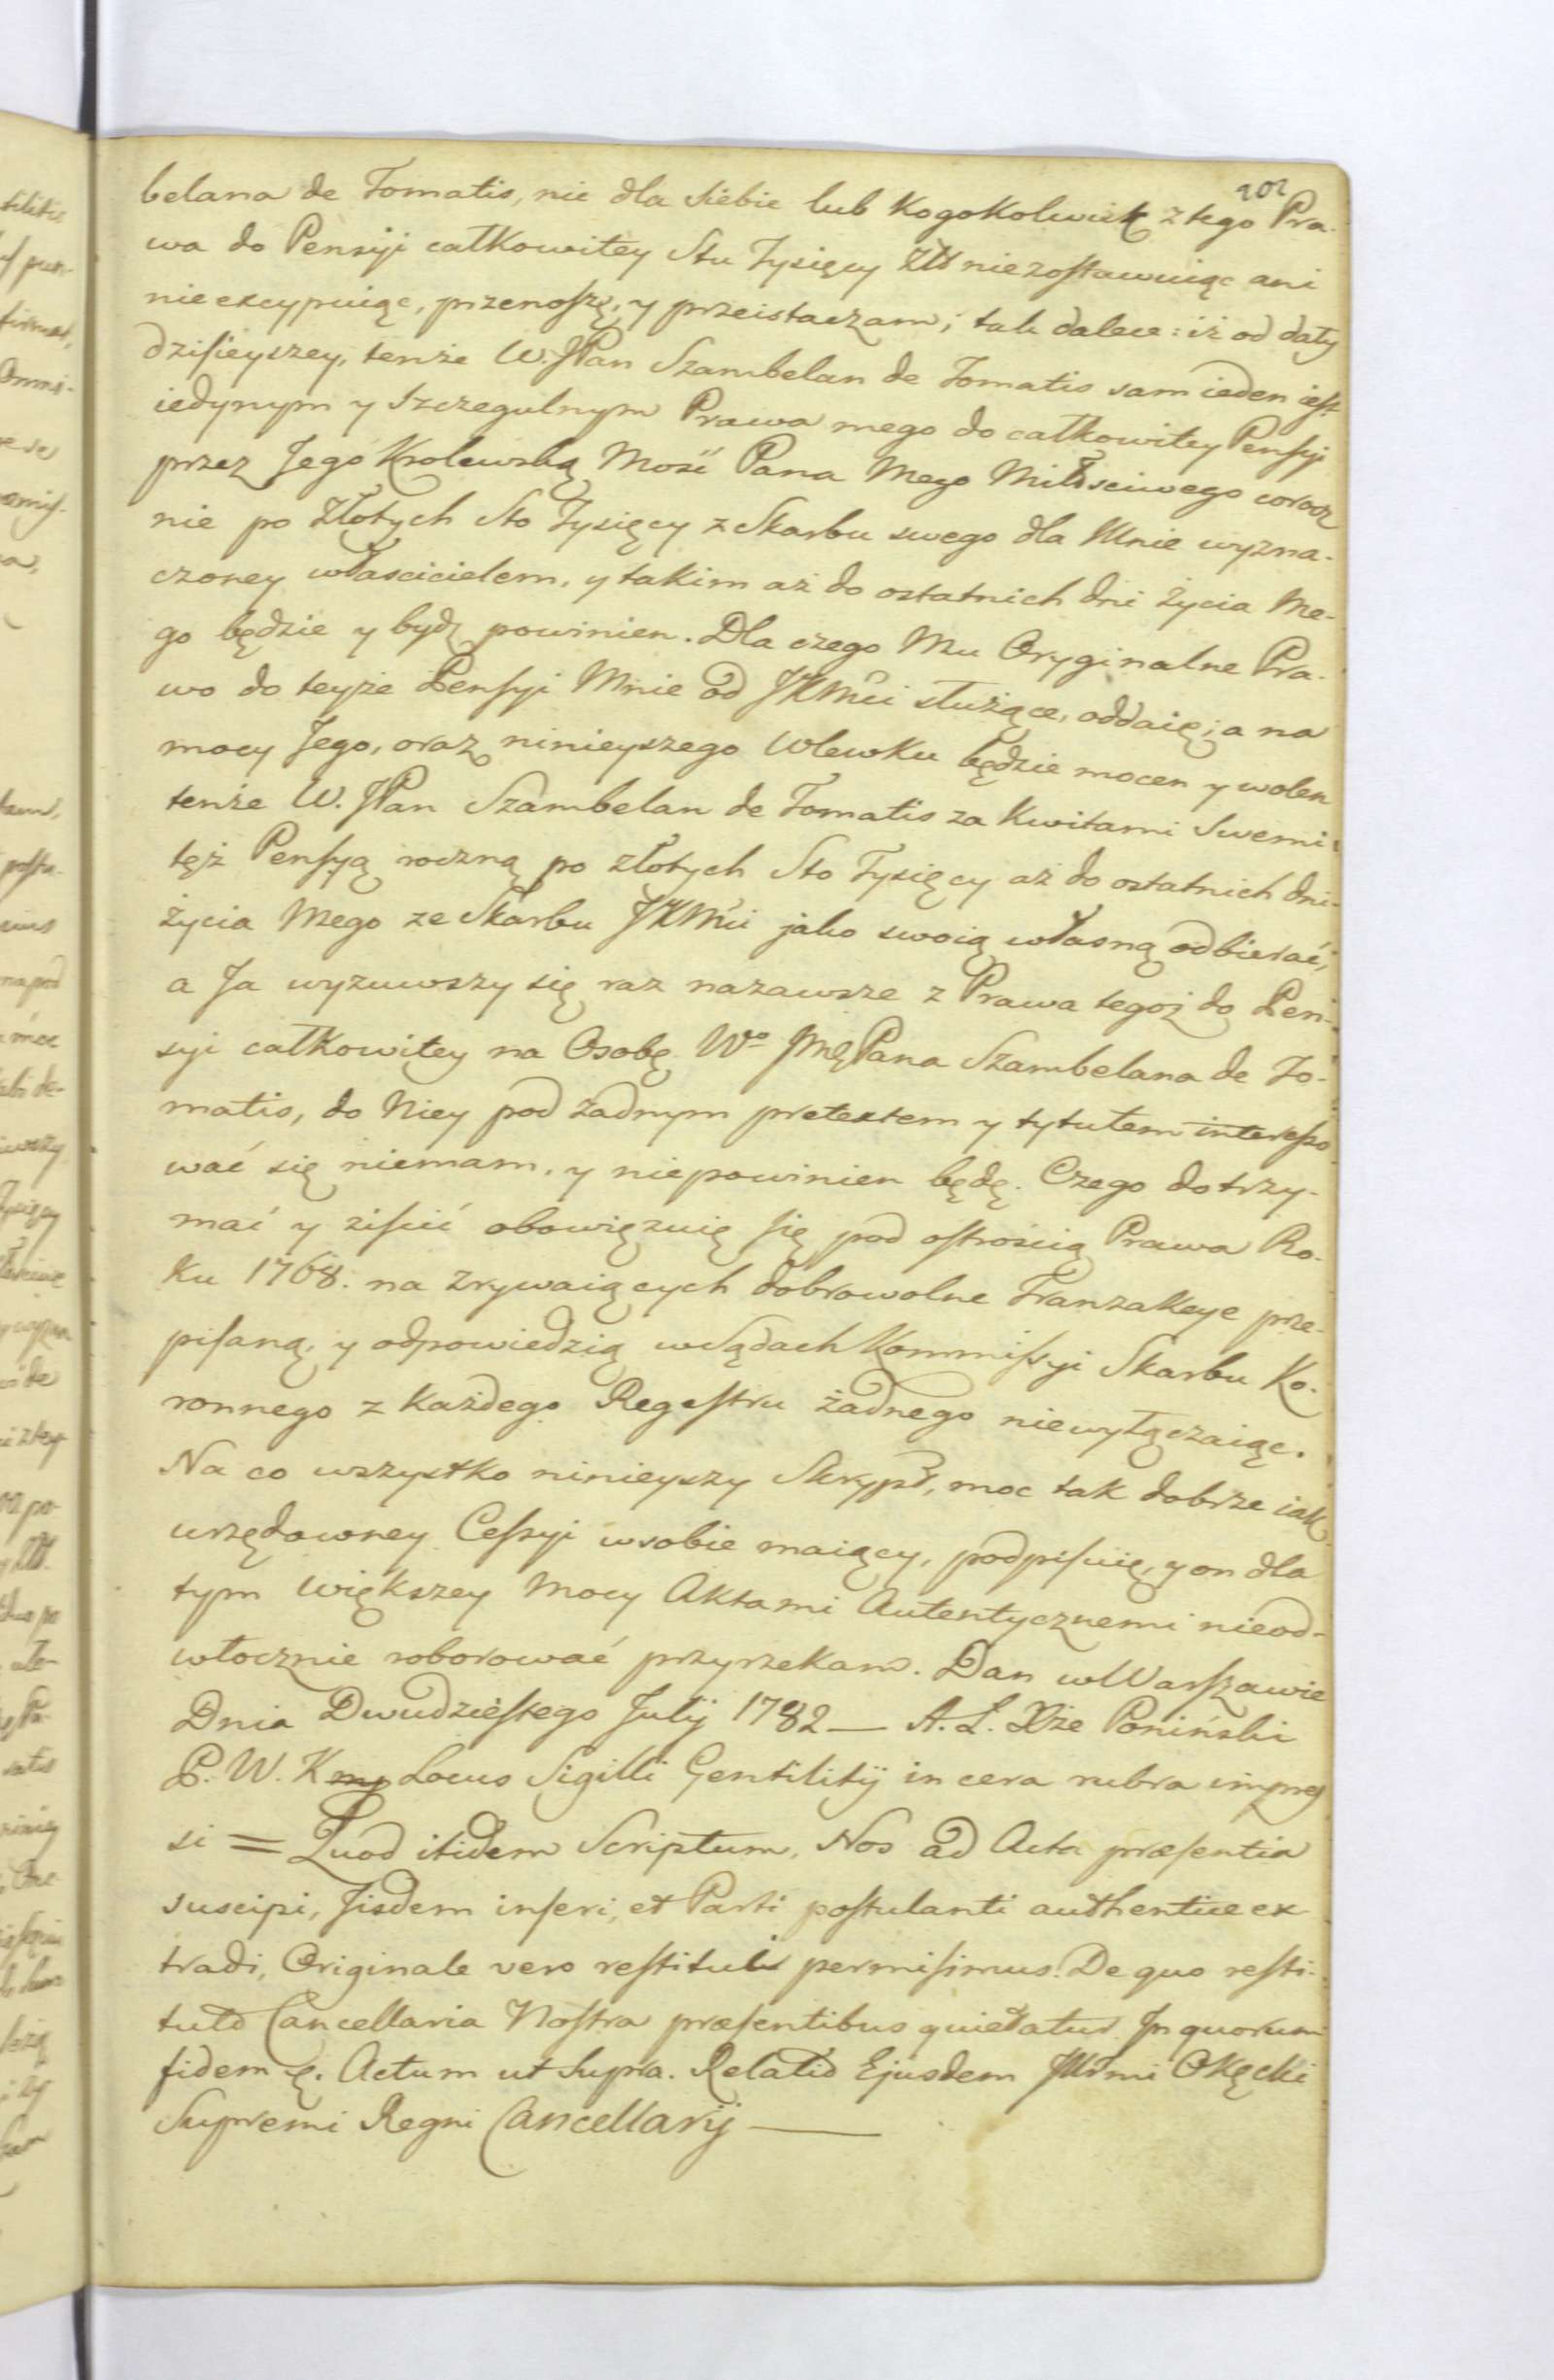 202
belana de Tomatis, nic dla siebie lub kogokolwiek z tego Pra-
wa do Pensyi całkowitey Stu Tysięcy Złł niezostawuiąc ani
nieexcypuiąc, przenoszę, y przeistaczam; tak dalece: iż od daty
dzisieyszey, tenże W. JPan Szambelan de Tomatis sam ieden iest
iedynym y szczegulnym Prawa mego do całkowitey Pensyi
przez Jego Krolewską Mość Pana Mego Miłościwego corocz
nie po Złotych Sto Tysięcy z Skarbu swego dla Mnie wyzna-
czoney włascicielem, y takim aż do ostatnich dni Życia Me-
go będzie y bydź powinien. Dla czego Mu Oryginalne Pra-
wo do teyże Pensyi Mnie od JKMci służące, oddaię; a na
mocy Jego, oraz ninieyszego Wlewku będzie mocen y wolen
tenże W. JPan Szambelan de Tomatis za Kwitami Swemi
tęż Pensyą roczną po złotych Sto Tysięcy aż do ostatnich dni
życia Mego ze Skarbu JKMci jako swoią własną odbierać,
a Ja wyzuwszy się raz nazawsze z Prawa tegoż do Pen-
syi całkowitey na Osobę Wo JmęPana Szambelana de To-
matis, do Niey pod żadnym pretextem y tytułem interesso
wać się niemam, y niepowinien będę. Czego dotrzy-
mać y ziścić obowięzuię się pod ostrością Prawa Ro-
ku 1768. na Zrywaiących dobrowolne Tranzakcye prze-
pisaną, y odpowiedzią w Sądach Kommissyi Skarbu Ko-
ronnego z Każdego Regestru żadnego niewyłączaiąc.
Na co wszystko ninieyszy Skrypt, moc tak dobrze iak
urzędowney Cessyi w sobie maiący, podpisuię, y on dla
tym większey Mocy Aktami Autentycznemi nieod-
włocznie roborować przyrzekam. Dan w Warszawie
Dnia Dwudziestego July 1782 — A. L. Xże Poniński
P. W. K mp Locus Sigilli Gentilitÿ in cera rubra impres
si = Quod itidem Scriptum, Nos ad Acta præsentia
suscipi, Jisdem inseri, et Parti postulanti authentice ex
tradi, Originale vero restitui permisimus. De quo resti-
tuto Cancellaria Nostra præsentibus quietatur. In quorum
fidem &. Actum ut supra. Relatio Ejusdem Jllrmi Okęcki
Supremi Regni Cancellarÿ —